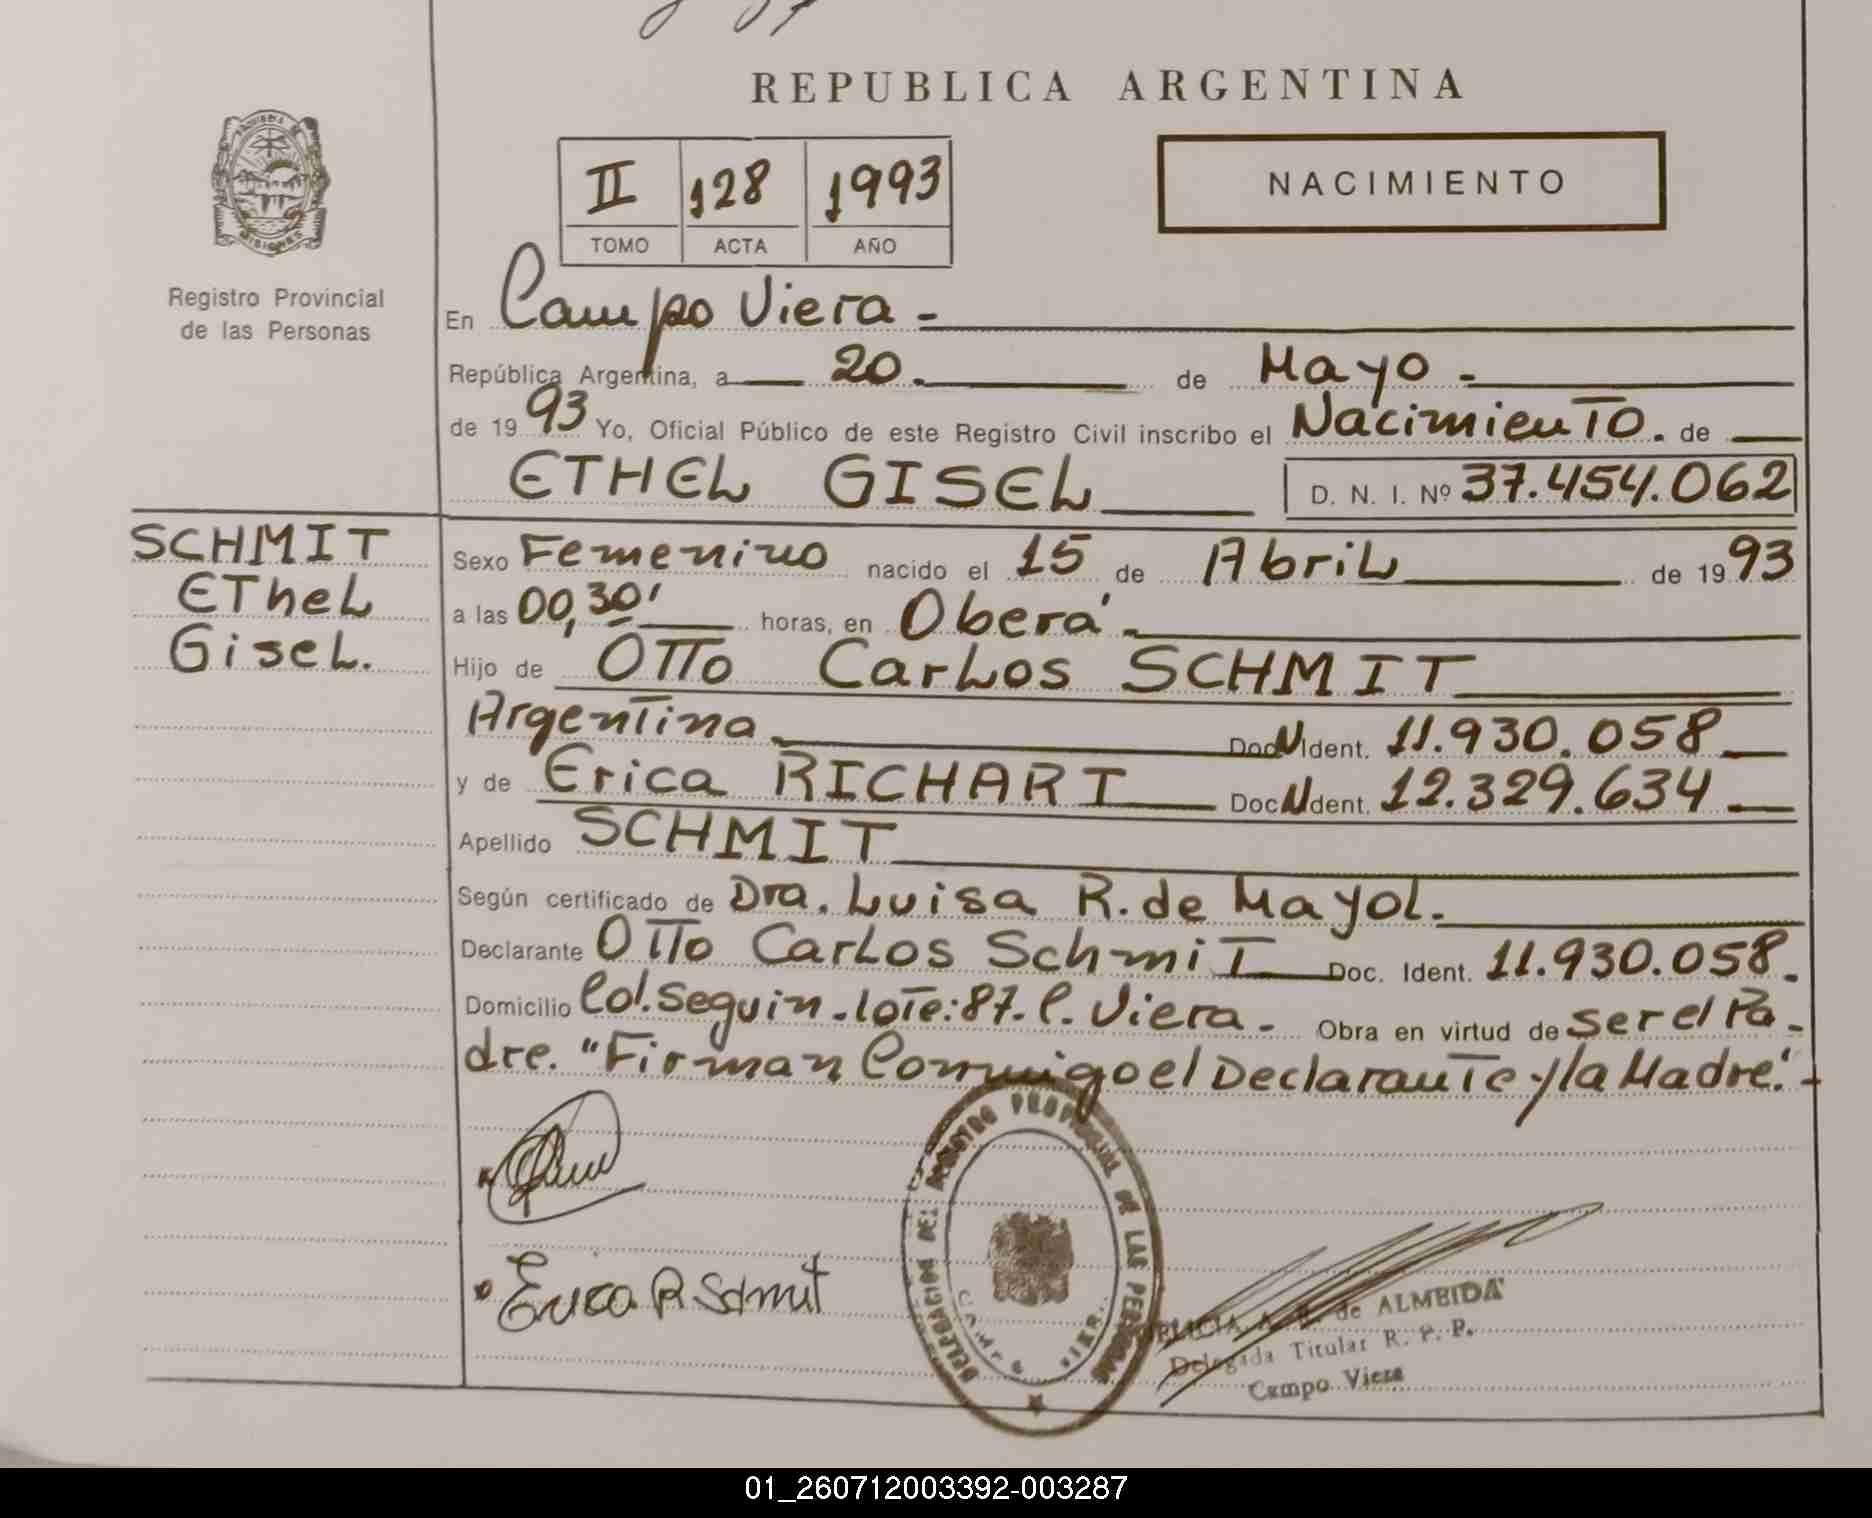 REPUBLICA ARGENTINA
PROVINCIA DE
MISIONES
Registro Provincial
de las Personas
II 128 1993
TOMO ACTA AÑO
NACIMIENTO
En Campo Viera -
República Argentina, a 20. de Mayo -
de 19 93 Yo, Oficial Público de este Registro Civil inscribo el Nacimiento. de
ETHEL GISEL D. N. I. Nº 37.454.062
SCHMIT
EThel
Gisel.
Sexo Femenino nacido el 15 de Abril de 19 93
a las 00,30' horas, en Oberá -
Hijo de Otto Carlos SCHMIT
Argentina Doc N Ident. 11.930.058
y de Erica RICHART Doc N Ident. 12.329.634
Apellido SCHMIT
Según certificado de Dra. Luisa R. de Mayol.
Declarante Otto Carlos Schmit Doc. Ident. 11.930.058.
Domicilio Col. Seguin. lote: 87. C. Viera. Obra en virtud de ser el Pa-
dre. "Firman Conmigo el Declarante y la Madre." -
Erica R Schmit
DELEGACION DEL REGISTRO PROVINCIAL DE LAS PERSONAS
CAMPO VIERA
A. de ALMEIDA
Delegada Titular R. P. P.
Campo Viera
01_260712003392-003287